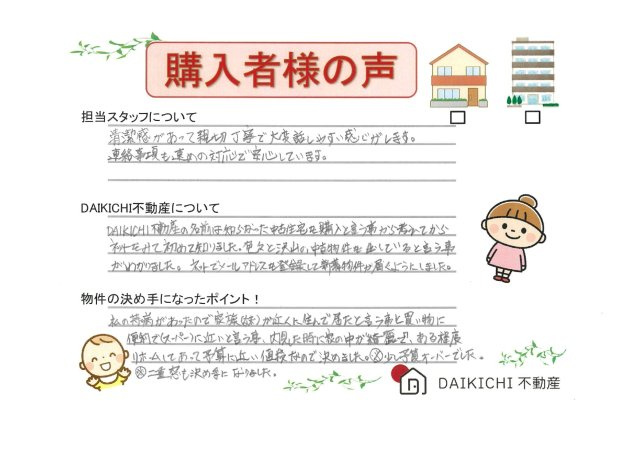 購入者様の声
担当スタッフについて
清潔感があって親切丁寧で大変話しやすい感じがします。
連絡事項も速めの対応で安心しています。
DAIKICHI不動産について
DAIKICHI不動産の名前は知らなかった中古住宅を購入と言う事から考えてから
ネットでみて初めて知りました。色々と沢山の中古物件を出していると言う事
がわかりました。ネットでメールアドレスを登録して新着物件が届くようにしました。
物件の決め手になったポイント！
私の持病があったので家族(姉)が近くに住んで居たと言う事と買い物に
便利で(スーパー)に近いと言う事、内見した時に家の中が綺麗で、ある程度
リホームしてあって予算に近い価格なので決めました。少し予算オーバーでした。
二重窓も決め手になりました。
DAIKICHI 不動産